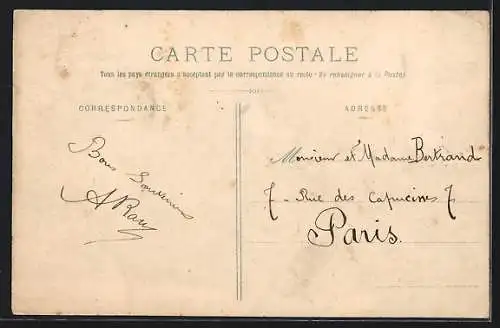 CARTE POSTALE
Tous les pays étrangers n'acceptent pas la correspondance au recto - Se renseigner à la Poste
CORRESPONDANCE
ADRESSE
Bons Souvenirs
Monsieur et Madame Bertrand
7 - Rue des Capucines 7
Paris.